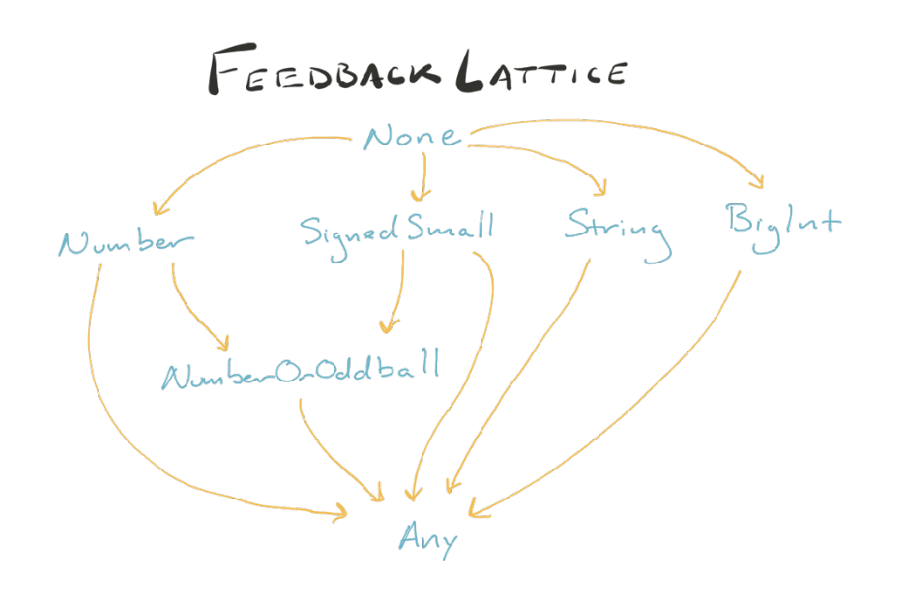 FEEDBACK LATTICE
None
Number
SignedSmall
String
BigInt
NumberOrOddball
Any